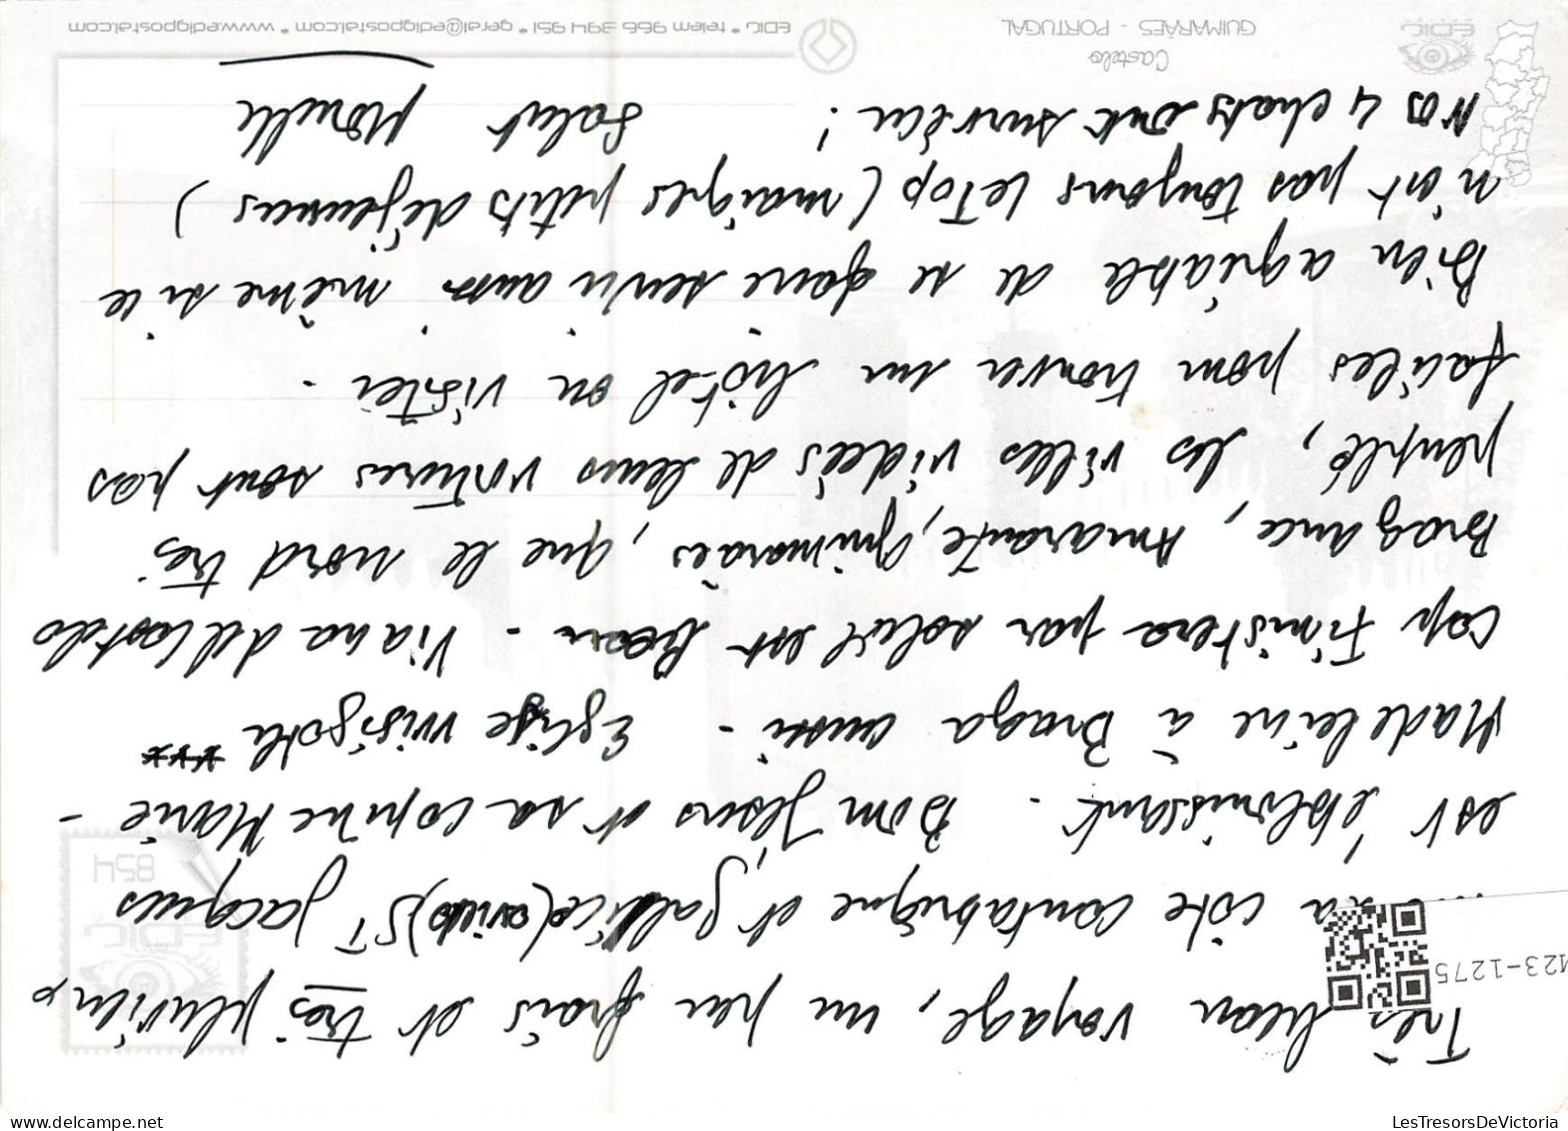 Très beau voyage, un peu frais et très pluvieux
La côte cantabrique et Gallice (oviedo) ST Jacques
est éblouissant. Bom Jésus et sa copine Marie-
Madeleine à Braga aussi. Eglise wisigoth ***
Cap Finistera par soleil est Beau. Viana del Castelo
Bragance, Amarante, Guimaraès, que le nord très
peuplé, les villes vidées de leurs voitures sont pas
faciles pour trouver un hôtel ou visiter.
Bien agréable de se faire servir aussi même si ce
n'est pas toujours le Top (maigres petits déjeuners)
Nos 4 chats ont survécu ! Salut
M23-1275
854
EDIC
Castelo
GUIMARÃES - PORTUGAL
EDIC
EDIC * telem 966 394 951 * geral@edigpostal.com * www.edigpostal.com
LesTresorsDeVictoria